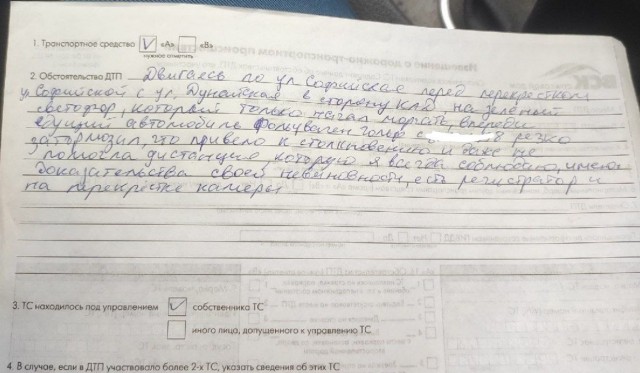 1. Транспортное средство ☑ «А» ☐ «В»
нужное отметить
2. Обстоятельство ДТП Двигаясь по ул Софийская перед перекрестком
ул Софийской с ул. Дунайская в сторону КАД на зелёный
светофор, который только начал моргать, впереди
едущий автомобиль Фольцваген Гольф с 8 резко
затормозил, что привело к столкновению и даже не
помогла дистанция которую я всегда соблюдаю, имею
доказательства своей невиновности, есть регистратор и
на перекрестке камеры
3. ТС находилось под управлением ☑ собственника ТС
☐ иного лица, допущенного к управлению ТС
4. В случае, если в ДТП участвовало более 2-х ТС, указать сведения об этих ТС